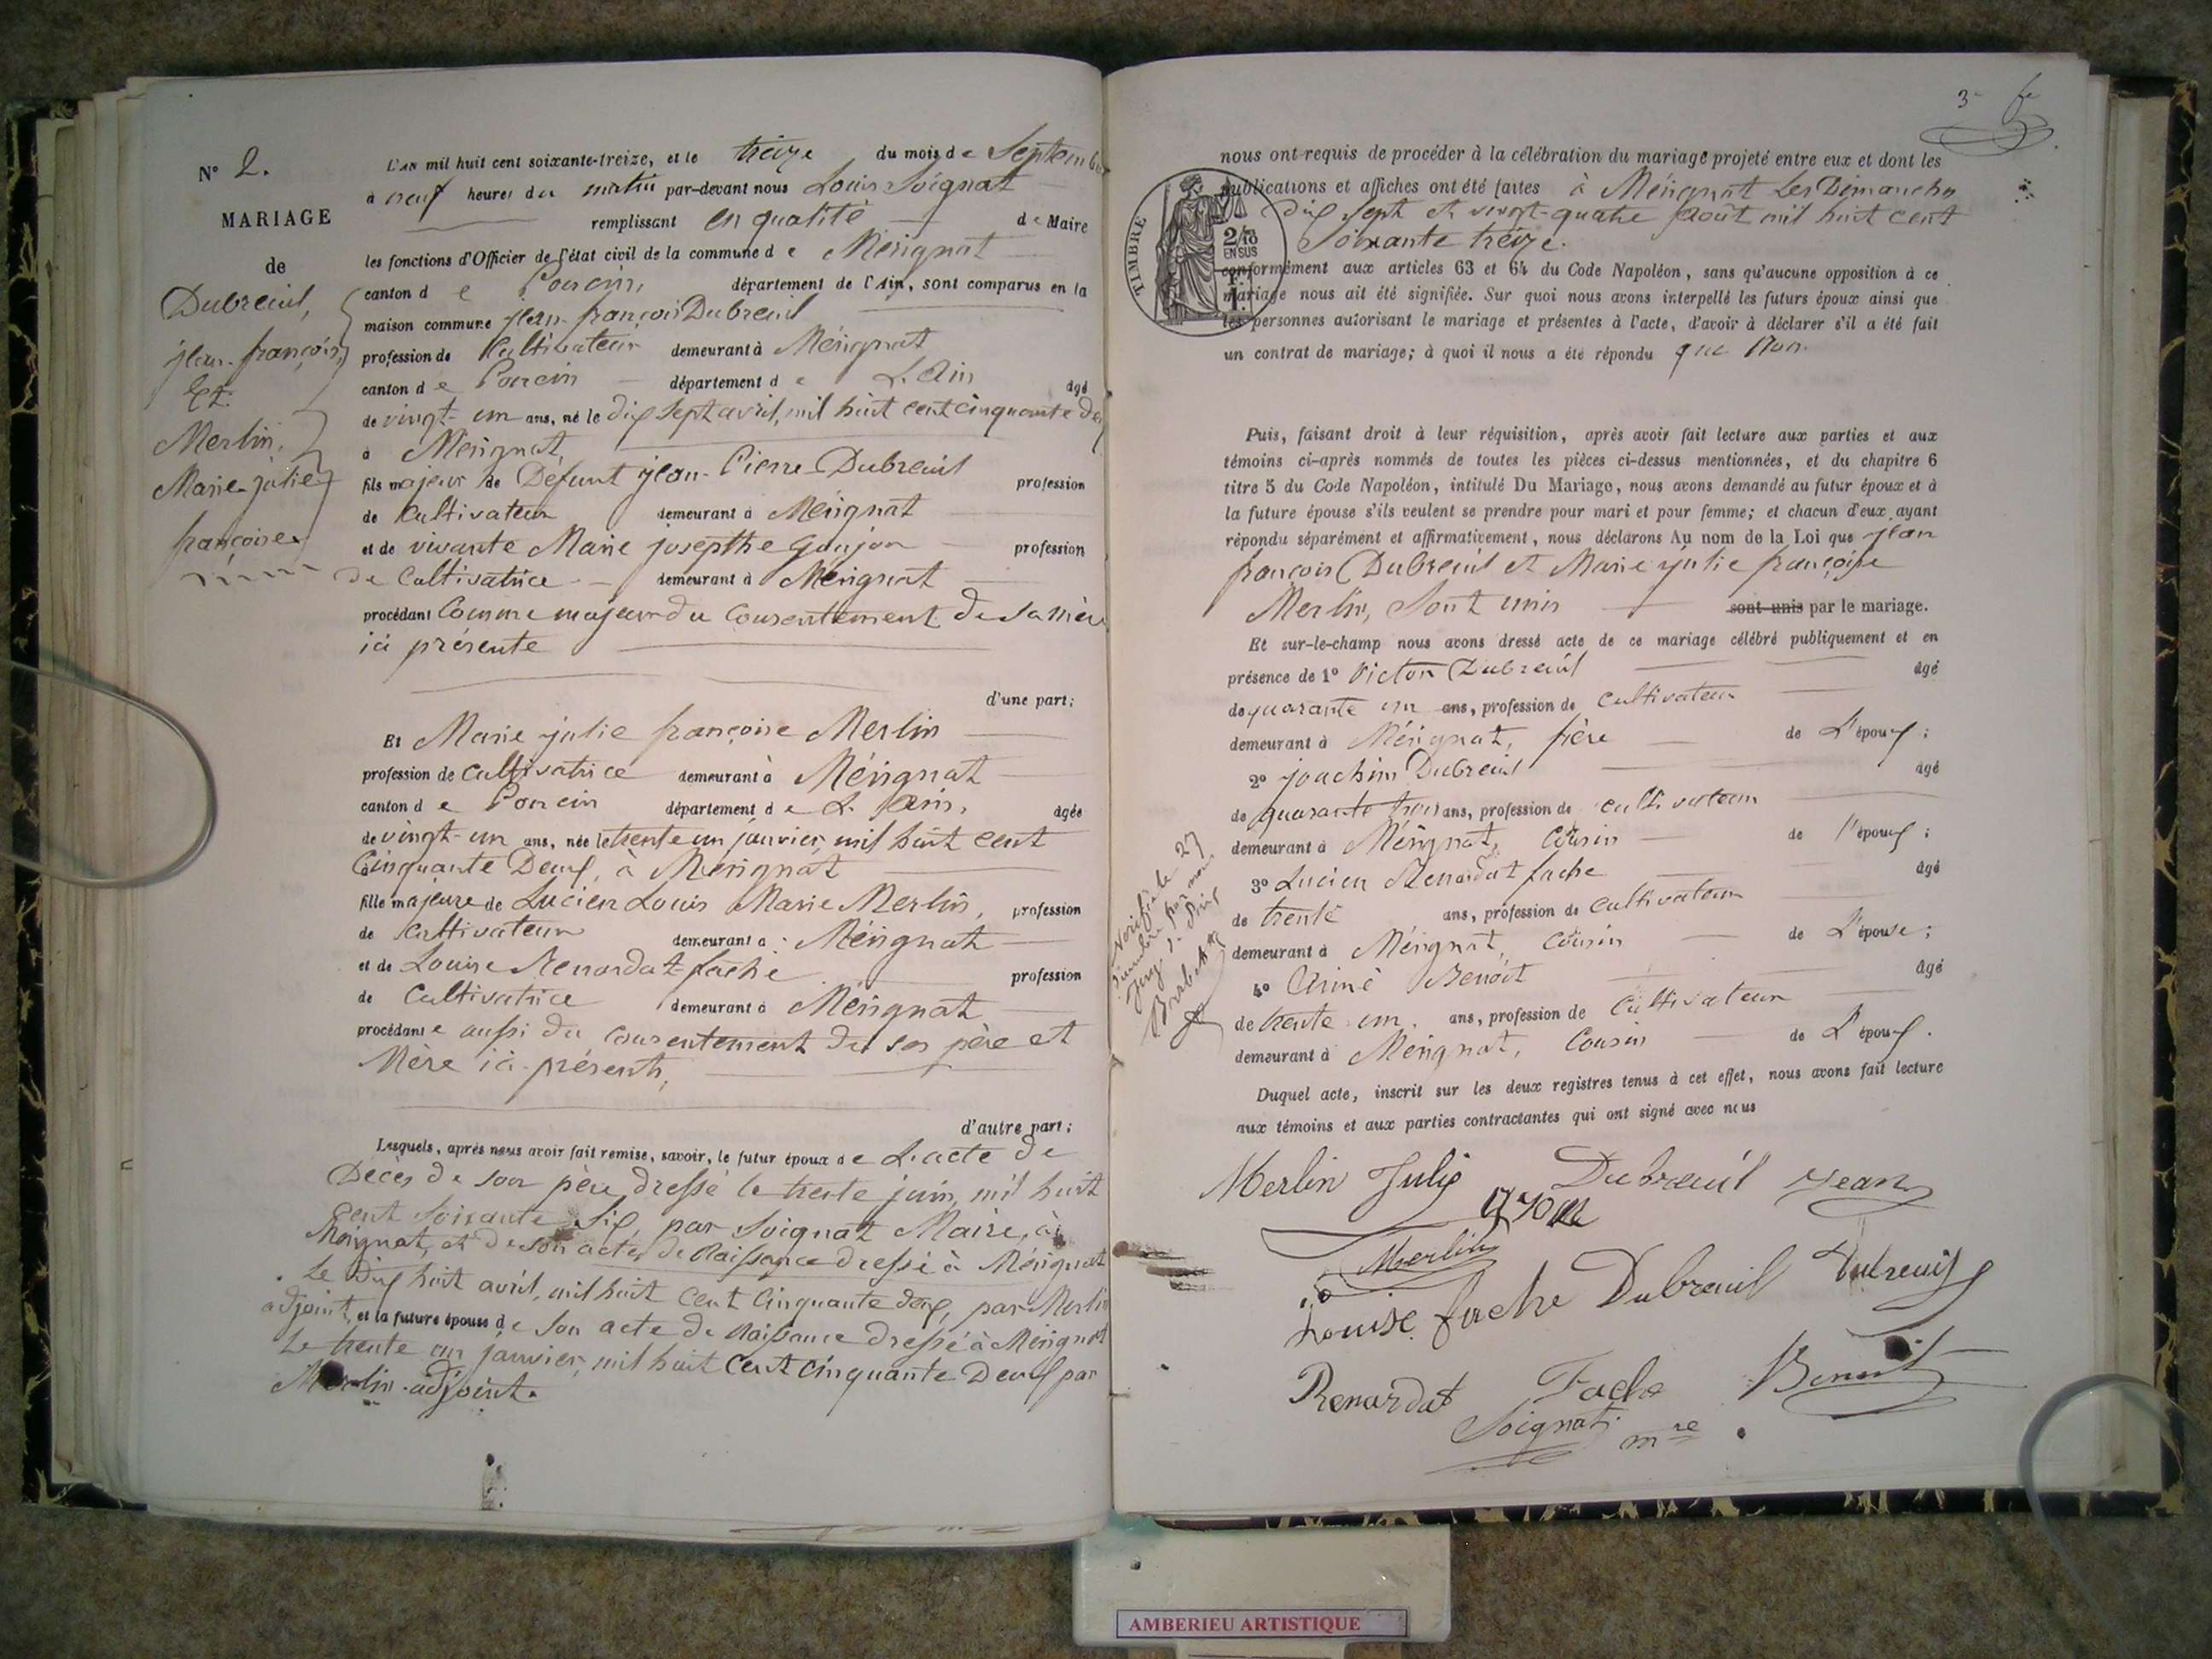 N° 2.
MARIAGE
de
Dubreuil,
jean-françois
Et
Merlin,
Marie-julie
françoise
L'AN mil huit cent soixante-treize, et le treize du mois de Septembre
à neuf heures du matin par-devant nous Louis Soignat
remplissant en qualité de Maire
les fonctions d'Officier de l'état civil de la commune de Mérignat
canton de Poncin, département de l'Ain, sont comparus en la
maison commune jean-françois Dubreuil
profession de Cultivateur demeurant à Mérignat
canton de Poncin département de L'Ain âgé
de vingt-un ans, né le dix sept avril, mil huit cent cinquante deux
à Mérignat,
fils majeur de Défunt jean-Pierre Dubreuil profession
de Cultivateur demeurant à Mérignat
et de vivante Marie josepthe Goujon profession
de Cultivatrice demeurant à Mérignat
procédant Comme majeur du Consentement de sa mère
ici présente
d'une part;
Et Marie julie françoise Merlin
profession de Cultivatrice demeurant à Mérignat
canton de Poncin département de L'Ain, âgée
de vingt-un ans, née le trente un janvier mil huit cent
Cinquante Deux, à Mérignat
fille majeure de Lucien Louis Marie Merlin, profession
de Cultivateur demeurant à Mérignat
et de Louise Renardat-fache profession
de Cultivatrice demeurant à Mérignat
procédante aussi du consentement de ses père et
Mère ici présents,
d'autre part;
Lesquels, après nous avoir fait remise, savoir, le futur époux de L'acte de
Décès de son père dressé le trente juin, mil huit
cent soixante six, par Soignat Maire, à
Mérignat, et de son acte de Naissance dressé à Mérignat
Le dix huit avril, mil huit Cent Cinquante deux, par Merlin
adjoint, et la future épouse de son acte de Naissance dressé à Mérignat
Le trente un janvier, mil huit Cent Cinquante Deux par
Merlin adjoint.
3
nous ont requis de procéder à la célébration du mariage projeté entre eux et dont les
publications et affiches ont été faites à Mérignat Les Dimanches
dix sept et vingt-quatre Août mil huit cent
Soixante treize.
TIMBRE
2/10
EN SUS
1 F.
conformément aux articles 63 et 64 du Code Napoléon, sans qu'aucune opposition à ce
mariage nous ait été signifiée. Sur quoi nous avons interpellé les futurs époux ainsi que
les personnes autorisant le mariage et présentes à l'acte, d'avoir à déclarer s'il a été fait
un contrat de mariage; à quoi il nous a été répondu que Non.
Puis, faisant droit à leur réquisition, après avoir fait lecture aux parties et aux
témoins ci-après nommés de toutes les pièces ci-dessus mentionnées, et du chapitre 6
titre 5 du Code Napoléon, intitulé Du Mariage, nous avons demandé au futur époux et à
la future épouse s'ils veulent se prendre pour mari et pour femme; et chacun d'eux ayant
répondu séparément et affirmativement, nous déclarons Au nom de la Loi que jean
françois Dubreuil et Marie julie françoise
Merlin, Sont unis sont unis par le mariage.
Et sur-le-champ nous avons dressé acte de ce mariage célébré publiquement et en
présence de 1° Victor Dubreuil âgé
de quarante un ans, profession de Cultivateur
demeurant à Mérignat, frère de L'époux;
2° joachim Dubreuil âgé
de quarante trois ans, profession de cultivateur
demeurant à Mérignat, Cousin de l'époux;
3° Lucien Renardat fache âgé
de trente ans, profession de Cultivateur
demeurant à Mérignat, Cousin de L'épouse;
4° Aimé Benoit âgé
de trente un ans, profession de Cultivateur
demeurant à Mérignat, Cousin de L'époux.
Duquel acte, inscrit sur les deux registres tenus à cet effet, nous avons fait lecture
aux témoins et aux parties contractantes qui ont signé avec nous
Merlin Julie Dubreuil Jean
Merlin
Louise fache Dubreuil Dubreuil
Renardat Fache Benoit
Soignat mre
AMBERIEU ARTISTIQUE